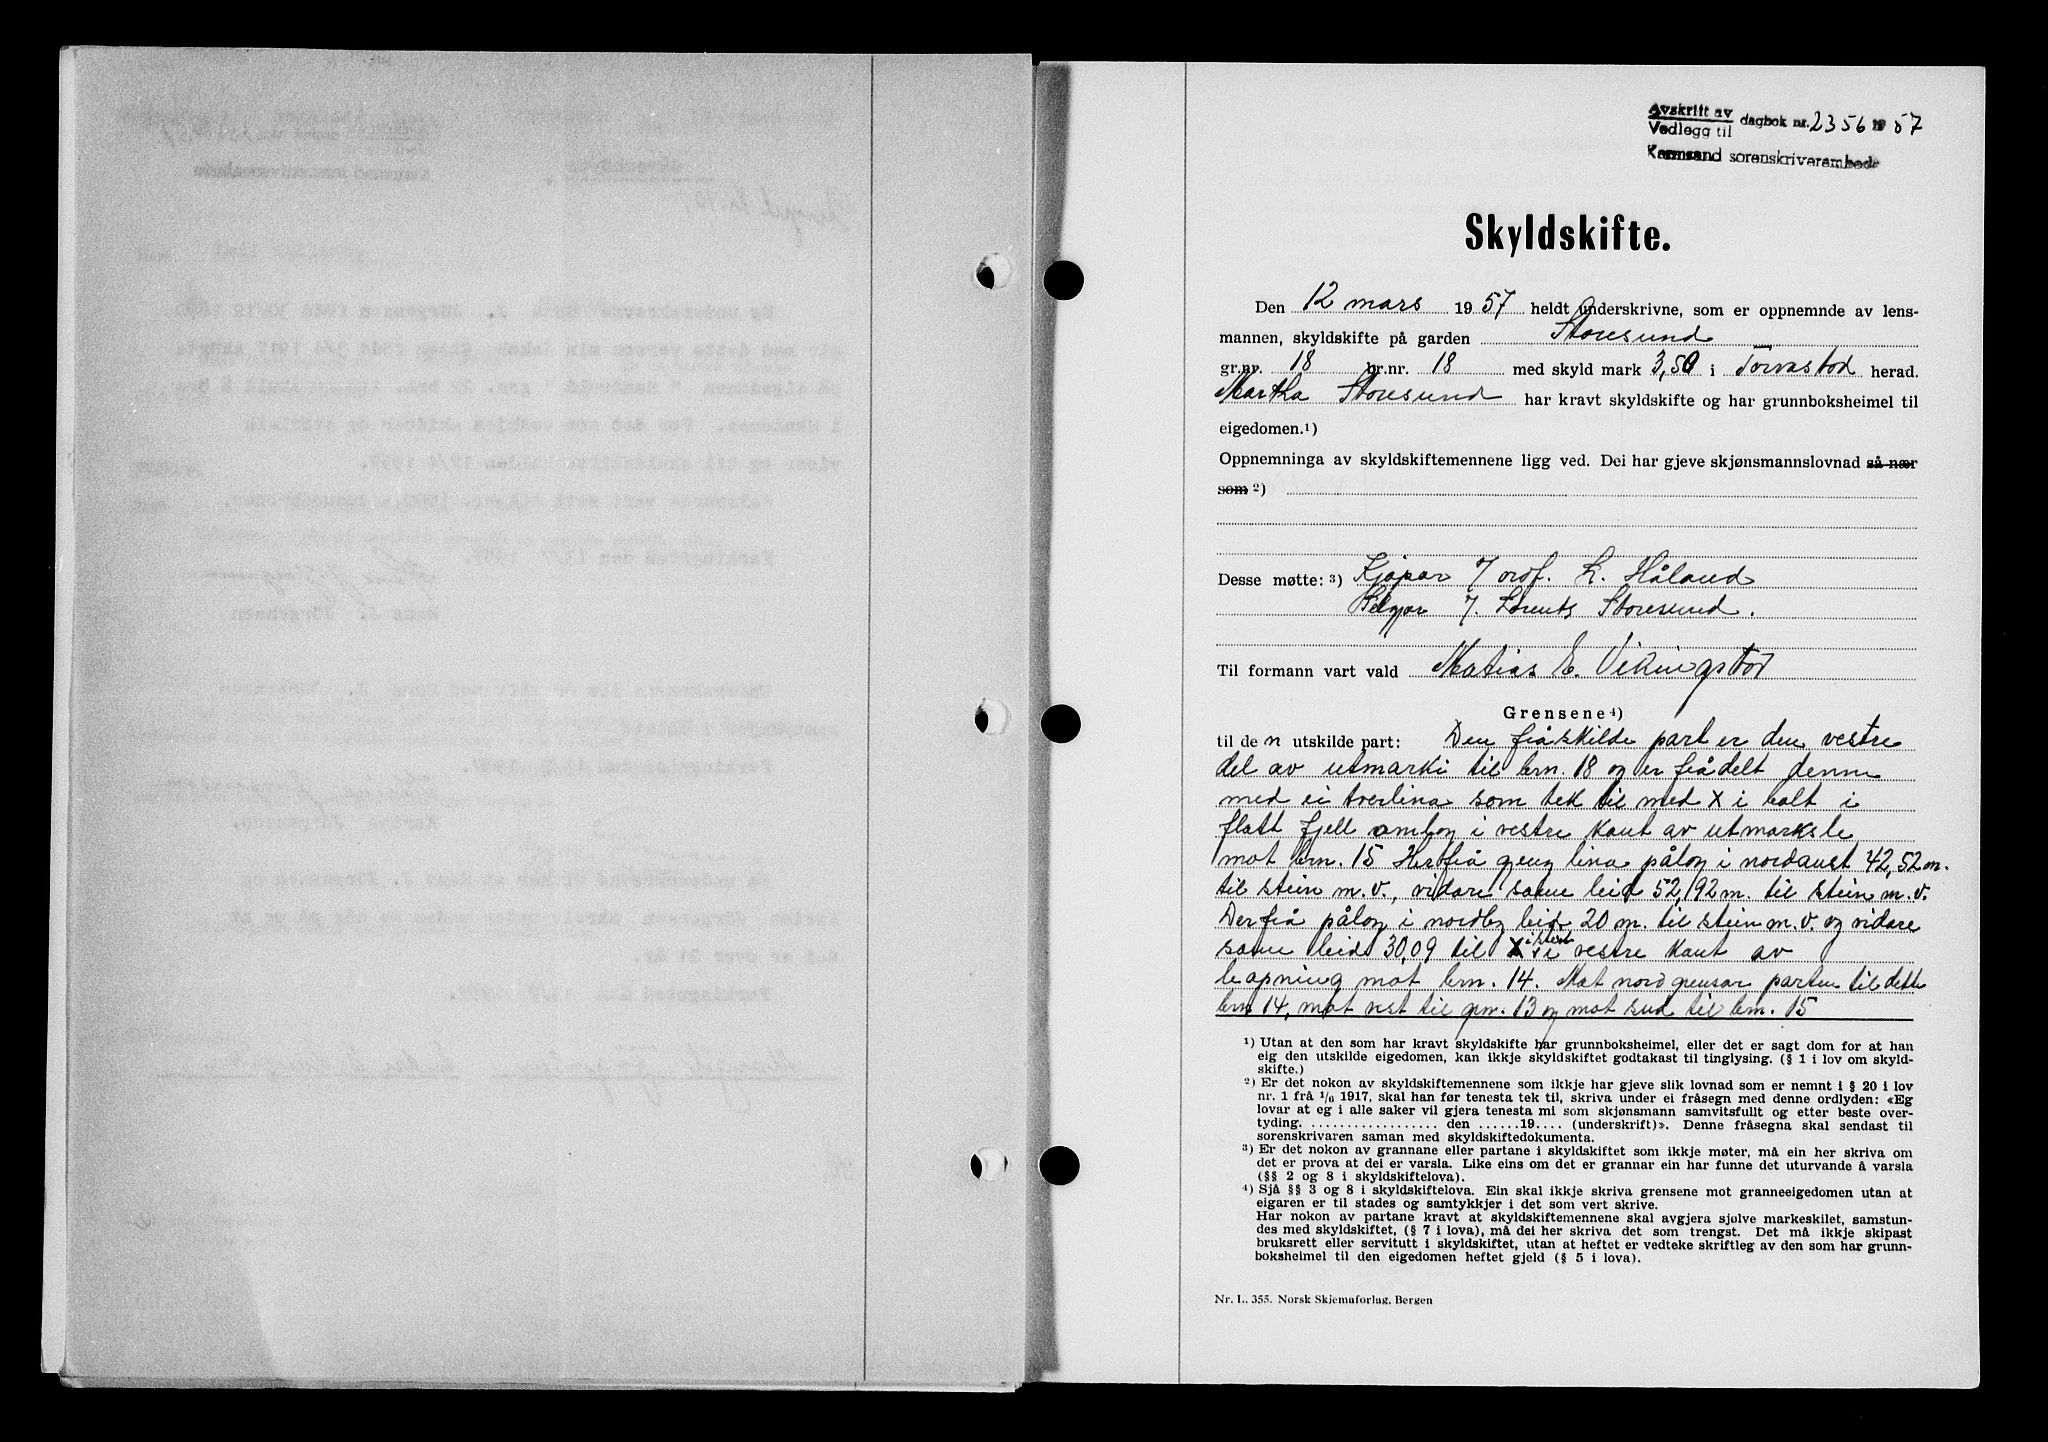 Avskrift av
Vedlegg til dagbok nr. 2356 19 57
Karmsund sorenskriverembede
Skyldskifte.
Den 12 mars 1957 heldt underskrivne, som er oppnemnde av lens-
mannen, skyldskifte på garden Storesund
gr.nr. 18 br.nr. 18 med skyld mark 3,50 i Torvastad herad.
Martha Storesund har kravt skyldskifte og har grunnboksheimel til
eigedomen.¹)
Oppnemninga av skyldskiftemennene ligg ved. Dei har gjeve skjønsmannslovnad så nær
som ²)
Desse møtte: ³) Kjøpar L. Håland
Seljar Lorents Storesund.
Til formann vart vald Matias E. Vikingstad
Grensene ⁴)
til den utskilde part: Den fråskilde part er den vestre
del av utmarki til brn. 18 og er frådelt denne
med ei tverlina som tek til med X i bolt i
flatt fjell ombog i vestre kant av utmarksle
mot brn. 15 Herfrå geng lina pålog i nordaust 42,52 m.
til stein m.v., vidare same leid 52,92 m. til stein m.v.
Derfrå pålog i nordleg leid 20 m. til stein m.v. og vidare
same leid 30,09 til X i stein i vestre kant av
leapning mot brn. 14. Mot nord grensar parten til dette
brn 14, mot vest til gnr. 13 og mot sud til brn. 15
¹) Utan at den som har kravt skyldskifte har grunnboksheimel, eller det er sagt dom for at han
eig den utskilde eigedomen, kan ikkje skyldskiftet godtakast til tinglysing. (§ 1 i lov om skyld-
skifte.)
²) Er det nokon av skyldskiftemennene som ikkje har gjeve slik lovnad som er nemnt i § 20 i lov
nr. 1 frå ¹/₆ 1917, skal han før tenesta tek til, skriva under ei fråsegn med denne ordlyden: «Eg
lovar at eg i alle saker vil gjera tenesta mi som skjønsmann samvitsfullt og etter beste over-
tyding. ................. den ......19.... (underskrift)». Denne fråsegna skal sendast til
sorenskrivaren saman med skyldskiftedokumenta.
³) Er det nokon av grannane eller partane i skyldskiftet som ikkje møter, må ein her skriva om
det er prova at dei er varsla. Like eins om det er grannar ein har funne det uturvande å varsla
(§§ 2 og 8 i skyldskiftelova).
⁴) Sjå §§ 3 og 8 i skyldskiftelova. Ein skal ikkje skriva grensene mot granneeigedomen utan at
eigaren er til stades og samtykkjer i det som vert skrive.
Har nokon av partane kravt at skyldskiftemennene skal avgjera sjølve markeskilet, samstun-
des med skyldskiftet, (§ 7 i lova), må dei her skriva det som trengst. Det må ikkje skipast
bruksrett eller servitutt i skyldskiftet, utan at heftet er vedteke skriftleg av den som har grunn-
boksheimel til den eigedomen heftet gjeld (§ 5 i lova).
Nr. L. 355. Norsk Skjemaforlag, Bergen